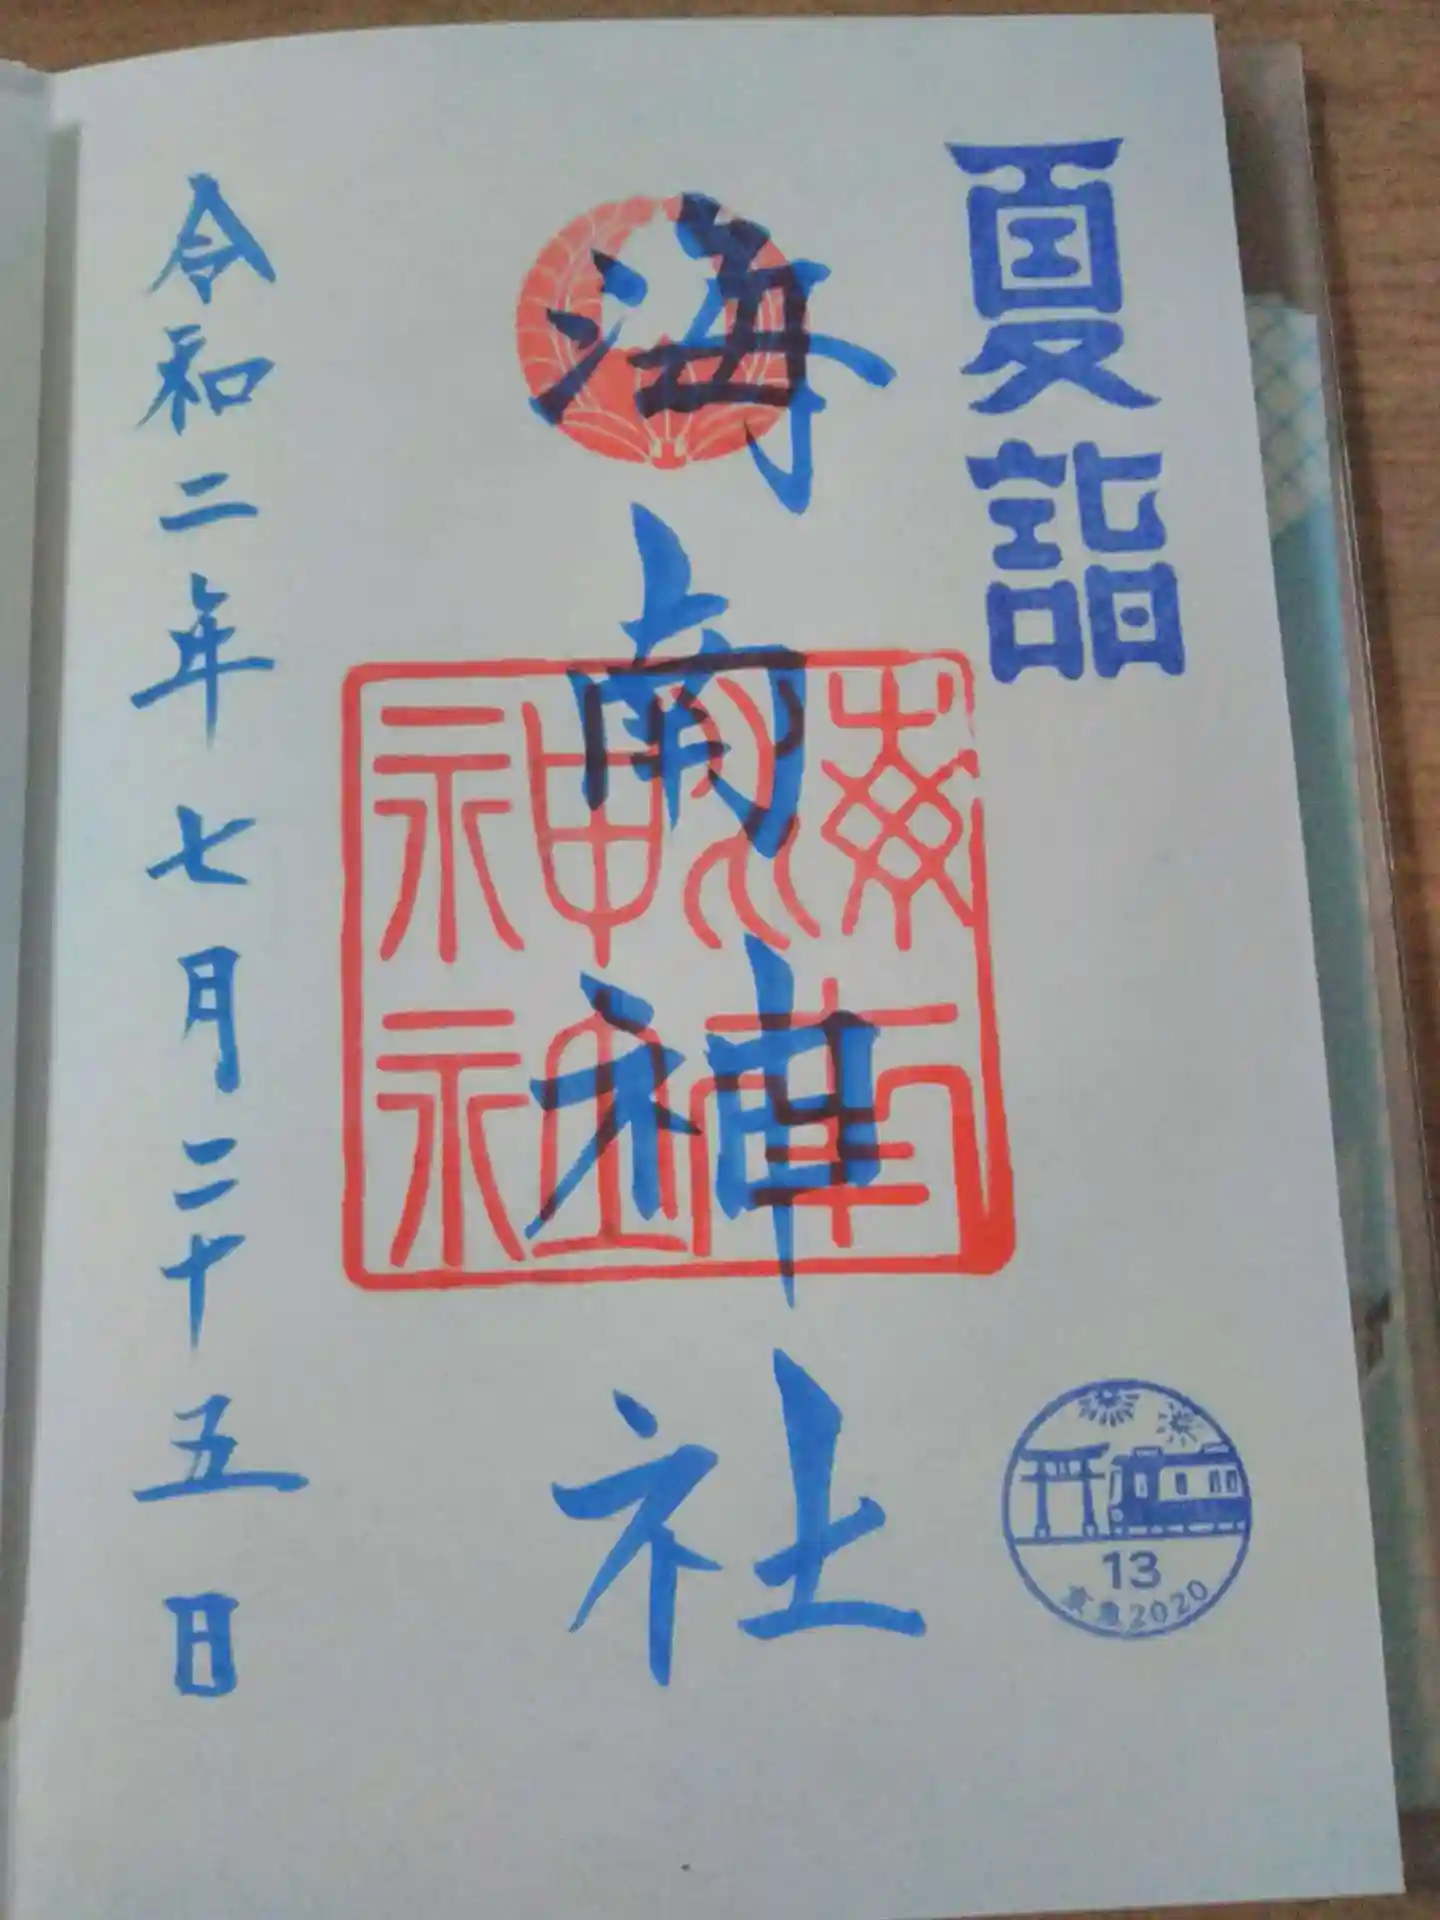 夏詣
海南神社
海南神社
令和二年七月二十五日
13
京急2020